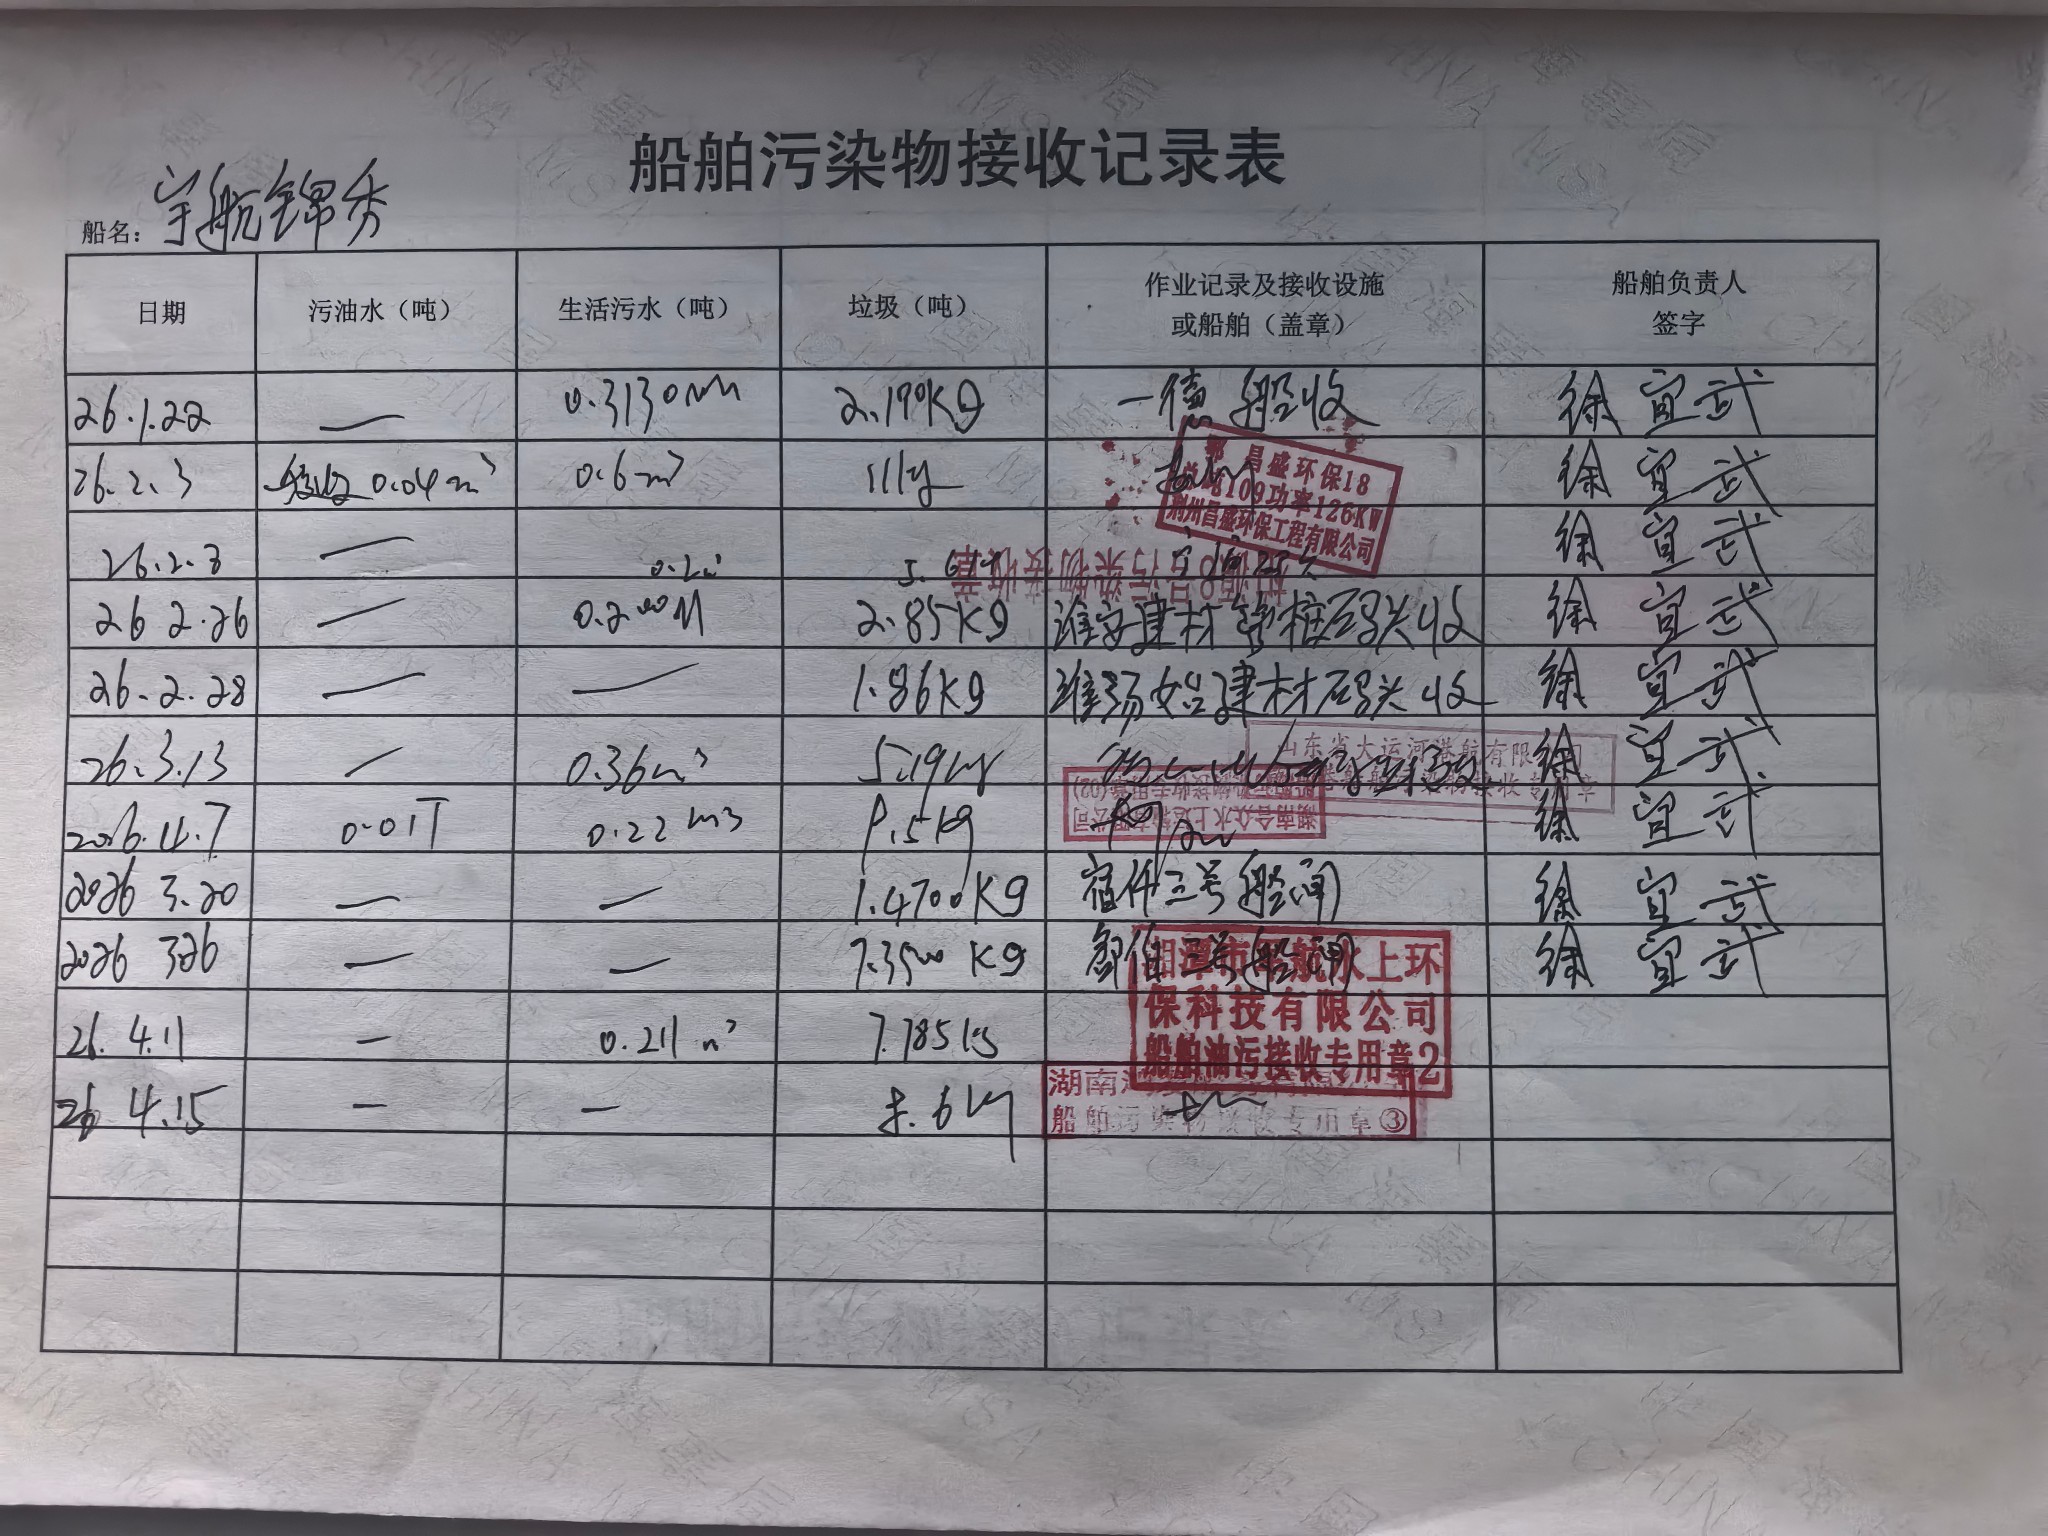 船舶污染物接收记录表
船名: 宇航锦秀
日期 污油水（吨） 生活污水（吨） 垃圾（吨） 作业记录及接收设施或船舶（盖章） 船舶负责人签字
26.1.22 — 0.3130 2.190KG 一德船收 徐宜武
26.2.3 0.04m³ 0.6m³ 11kg 徐宜武
昌盛环保18
8109功率126KW
荆州昌盛环保工程有限公司
26.2.8 — 0.2m³ 徐宜武
污染物接收章
26 2.26 — 0.2000M 2.85KG 淮安建材码头收 徐宜武
26.2.28 — — 1.86KG 建材码头收 徐宜武
26.3.13 — 0.36m³ 5.19kg 徐宜武
山东省大运河港航有限公司
船舶污染物接收专用章
2026.4.7 0.01T 0.22m3 .5kg 徐宜武
湖南合众水上运输有限公司
(02)
2026 3.20 — — 1.4700KG 宿迁三号船闸 徐宜武
2026 3.26 — — 7.3500KG 三号船闸 徐宜武
湘潭市船航水上环
保科技有限公司
船舶油污接收专用章2
26.4.11 — 0.211m³ 7.785kg
26 4.15 — — .6kg
湖南
船舶污染物接收专用章③